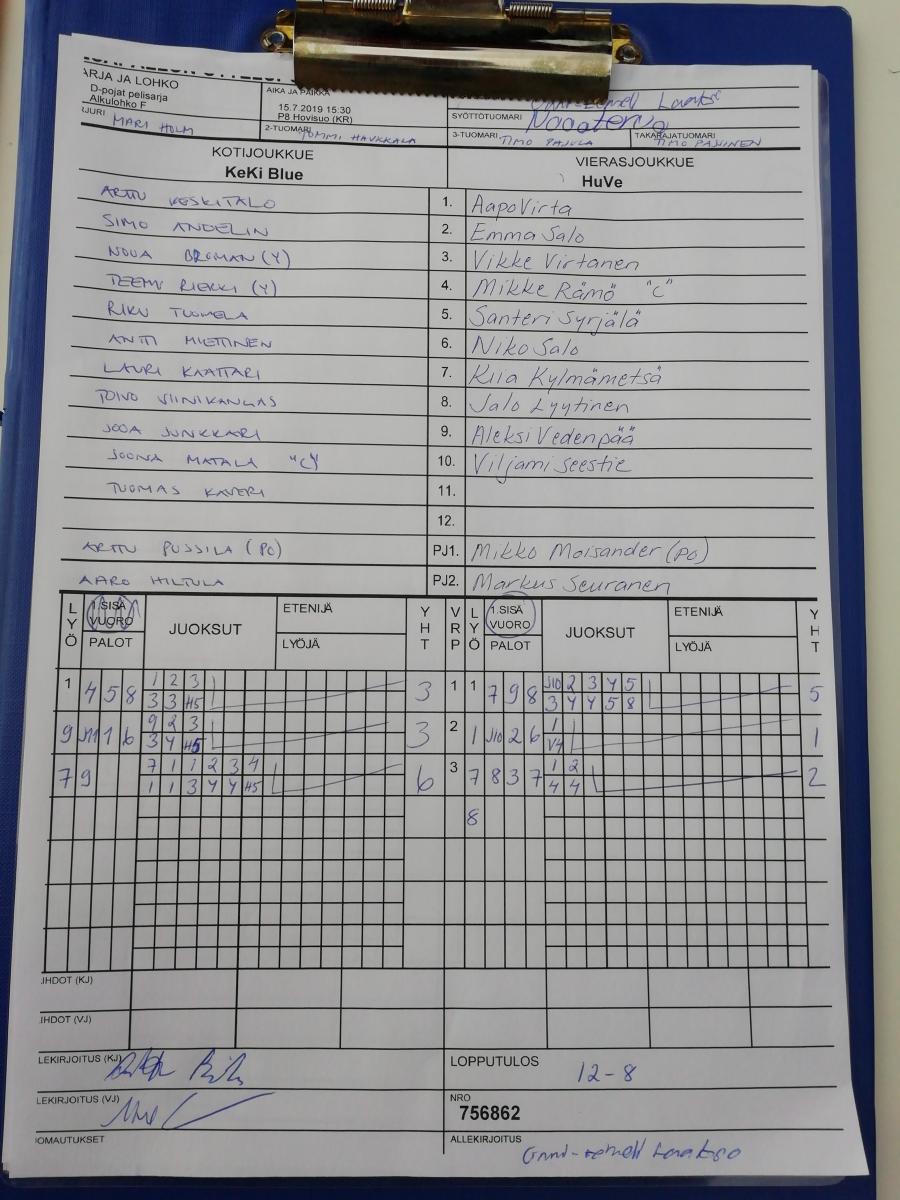 ARJA JA LOHKO
D-pojat pelisarja
Alkulohko F
AIKA JA PAIKKA
15.7.2019 15:30
P8 Hovisuo (KR)
SYÖTTÖTUOMARI
JURI MARI HOLM
2-TUOMARI TOMMI HAUKKALA
3-TUOMARI TIMO PAJULA
TAKARAJATUOMARI TIMO PAJUNEN
KOTIJOUKKUE
KeKi Blue
VIERASJOUKKUE
HuVe
ARTTU KESKITALO 1. Aapo Virta
SIMO ANDELIN 2. Emma Salo
NOUA BROMAN (Y) 3. Vikke Virtanen
TEEMU RIEKKI (Y) 4. Mikke Rämö "C"
RIKU TUOMELA 5. Santeri Syrjälä
ANTTI MIETTINEN 6. Niko Salo
LAURI KAATTARI 7. Kiia Kylmämetsä
TOIVO VIINIKANGAS 8. Jalo Lyytinen
JOOA JUNKKARI 9. Aleksi Vedenpää
JOONA MATALA "C" 10. Viljami Seestie
TUOMAS KAVERI 11.
12.
ARTTU PUSSILA (PO) PJ1. Mikko Moisander (PO)
AARO HILTULA PJ2. Markus Seuranen
LYÖ 1.SISÄ VUORO PALOT JUOKSUT ETENIJÄ LYÖJÄ YHT VRP LYÖ 1.SISÄ VUORO PALOT JUOKSUT ETENIJÄ LYÖJÄ YHT
1 4 5 8 1 2 3 3 1 1 7 9 8 J10 2 3 4 5 5
3 3 H5 3 4 4 5 8
9 J11 1 6 9 2 3 3 2 1 J10 2 6 1 1
3 4 H5 V4
7 9 7 1 1 2 3 4 6 3 7 8 3 7 1 2 2
1 1 3 4 4 H5 4 4
8
IHDOT (KJ)
IHDOT (VJ)
LEKIRJOITUS (KJ)
LOPPUTULOS 12-8
LEKIRJOITUS (VJ)
NRO
756862
OMAUTUKSET
ALLEKIRJOITUS